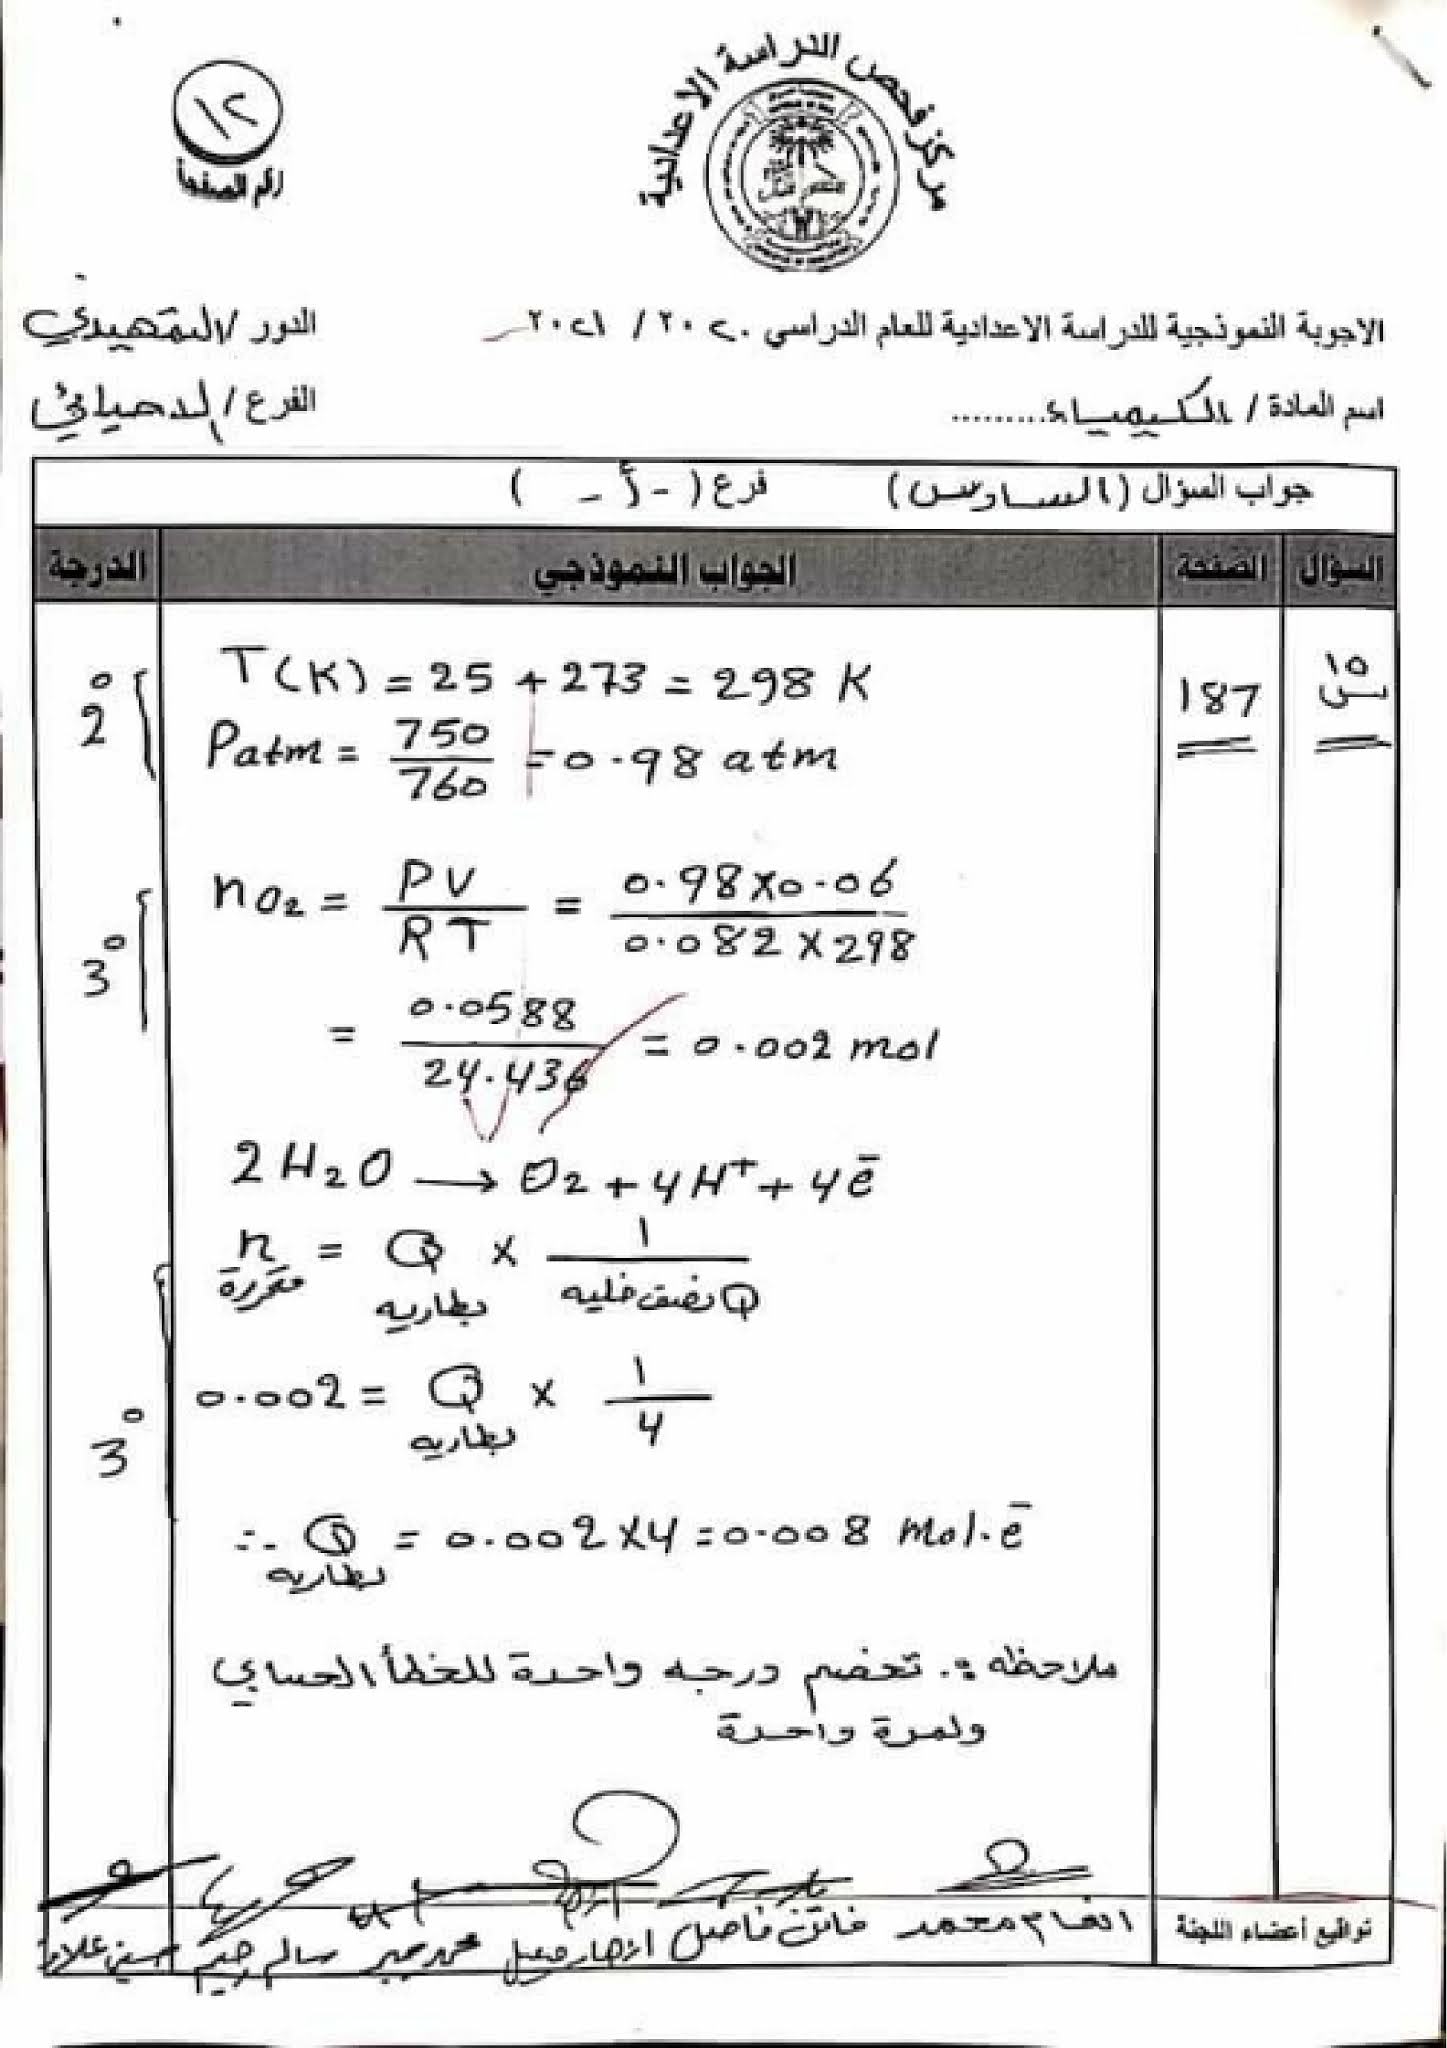 مركز فحص الدراسة الاعدادية
١٢
رقم الصفحة
الاجوبة النموذجية للدراسة الاعدادية للعام الدراسي ٢٠٢٠ / ٢٠٢١
الدور / التمهيدي
اسم المادة / الكيمياء.........
الفرع / الاحيائي
جواب السؤال (السادس) فرع ( - أ - )
السؤال الصفحة الجواب النموذجي الدرجة
س١٥
187
T(K) = 25 + 273 = 298 K
Patm = 750/760 = 0.98 atm
2°
nO2 = PV/RT = 0.98x0.06/0.082x298
3°
= 0.0588/24.436 = 0.002 mol
2H2O → O2 + 4H+ + 4e̅
n متحررة = Q بطارية x 1/Q نصف خلية
0.002 = Q بطارية x 1/4
3°
∴ Q بطارية = 0.002x4 = 0.008 mol.e̅
ملاحظه :. تخصم درجه واحدة للخطأ الحسابي
ولمرة واحدة
تواقيع أعضاء اللجنة
انغام محمد فاتن فاضل محمد سالم رحيم